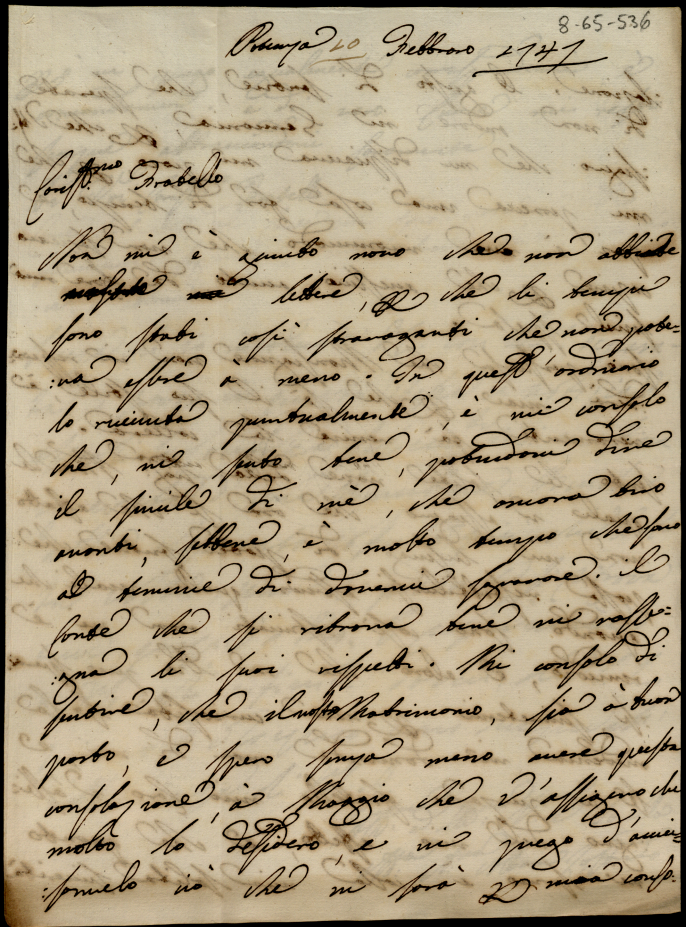 8-65-536
10 Febbraro 1747
Cariss.mo Fratello
Non mi è giunto novo che non abbiate
lettere, che li tempi
sono stati così stravaganti che non pote=
:va essere à meno. In quest'ordinario
lo ricevuta puntualmente, è mi consolo
che, vi siate bene, potendovi dire
il simile di mè, che ancora tiro
avanti, sebene, è molto tempo che sono
al termine di dovermi sgravare. il
Conte che si ritrova bene vi rasse=
:gna li suoi rispetti. Mi consolo di
sentire, che il vostro Matrimonio, sia à buon
porto, e spero senza meno avere questa
consolazione, à Maggio che v'assicuro che
molto lo desidero, e vi prego d'avvi=
:sarmelo ciò che mi sarà mia conso=